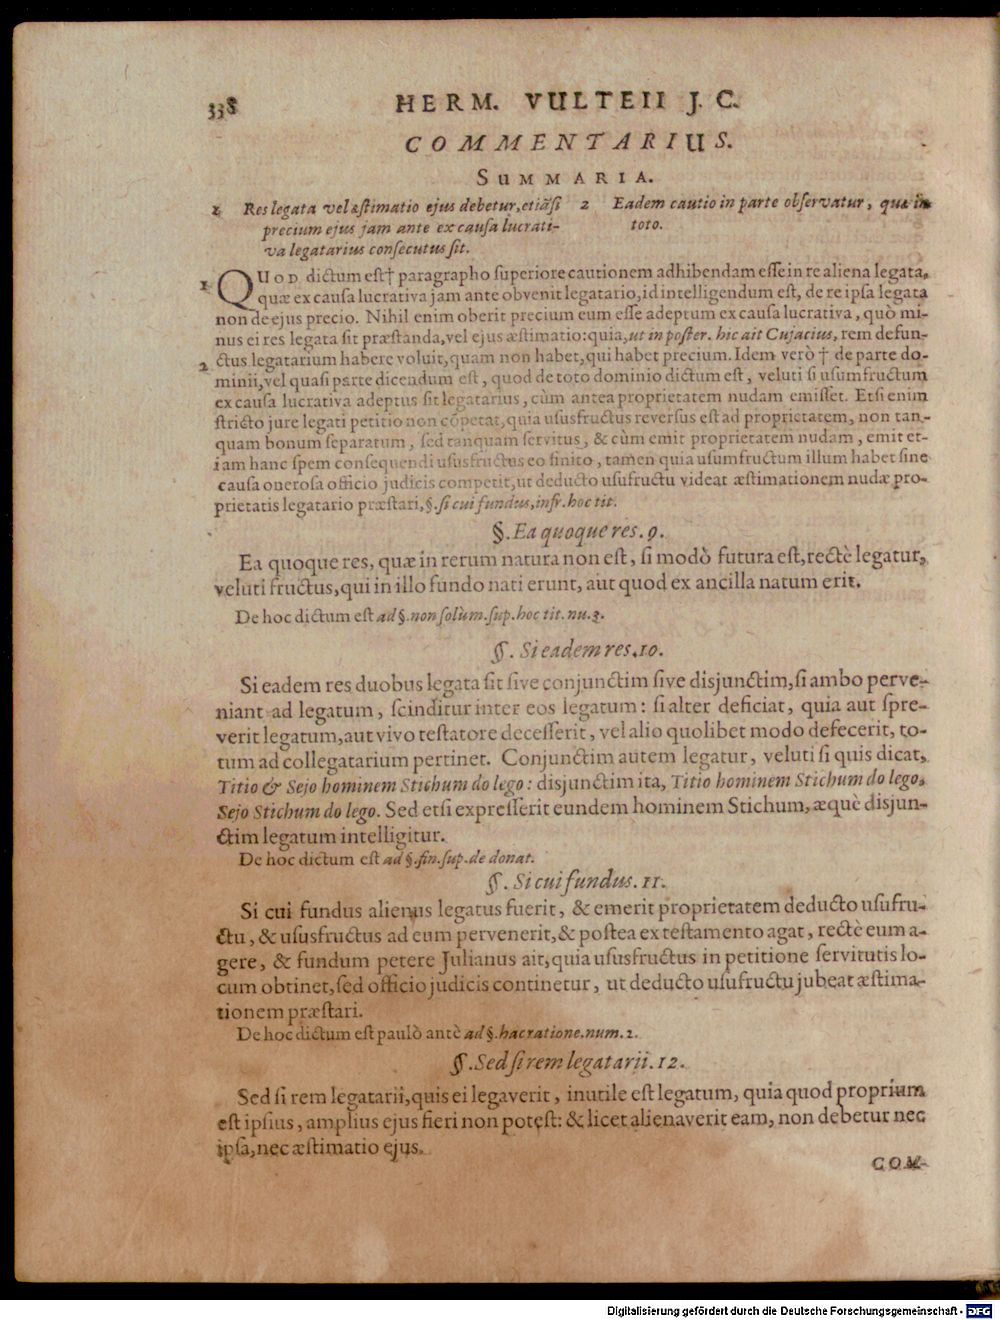 338 HERM. VULTEII J. C.
COMMENTARIUS.
SUMMARIA.
1 Res legata vel æstimatio ejus debetur, etiãsi
precium ejus jam ante ex causa lucrati-
va legatarius consecutus sit.
2 Eadem cautio in parte observatur, quæ in
toto.
1 QUOD dictum est† paragrapho superiore cautionem adhibendam esse in re aliena legata,
quæ ex causa lucrativa jam ante obvenit legatario, id intelligendum est, de re ipsa legata
non de ejus precio. Nihil enim oberit precium eum esse adeptum ex causa lucrativa, quò mi-
nus ei res legata sit præstanda, vel ejus æstimatio: quia, ut in poster. hic ait Cujacius, rem defun-
2 ctus legatarium habere voluit, quam non habet, qui habet precium. Idem verò † de parte do-
minii, vel quasi parte dicendum est, quod de toto dominio dictum est, veluti si usumfructum
ex causa lucrativa adeptus sit legatarius, cùm antea proprietatem nudam emisset. Etsi enim
stricto jure legati petitio non cõpetat, quia ususfructus reversus est ad proprietatem, non tan-
quam bonum separatum, sed tanquam servitus, & cùm emit proprietatem nudam, emit et-
iam hanc spem consequendi ususfructus eo finito, tamen quia usumfructum illum habet sine
causa onerosa officio judicis competit, ut deducto usufructu videat æstimationem nudæ pro-
prietatis legatario præstari, §. si cui fundus, infr. hoc tit.
§. Ea quoque res. 9.
Ea quoque res, quæ in rerum natura non est, si modò futura est, rectè legatur,
veluti fructus, qui in illo fundo nati erunt, aut quod ex ancilla natum erit.
De hoc dictum est ad §. non solùm. sup. hoc tit. nu. 3.
§. Si eadem res. 10.
Si eadem res duobus legata sit sive conjunctim sive disjunctim, si ambo perve-
niant ad legatum, scinditur inter eos legatum: si alter deficiat, quia aut spre-
verit legatum, aut vivo testatore decesserit, vel alio quolibet modo defecerit, to-
tum ad collegatarium pertinet. Conjunctim autem legatur, veluti si quis dicat,
Titio & Sejo hominem Stichum do lego: disjunctim ita, Titio hominem Stichum do lego,
Sejo Stichum do lego. Sed etsi expresserit eundem hominem Stichum, æquè disjun-
ctim legatum intelligitur.
De hoc dictum est ad §. fin. sup. de donat.
§. Si cui fundus. 11.
Si cui fundus alienus legatus fuerit, & emerit proprietatem deducto usufru-
ctu, & ususfructus ad eum pervenerit, & postea ex testamento agat, rectè eum a-
gere, & fundum petere Julianus ait, quia ususfructus in petitione servitutis lo-
cum obtinet, sed officio judicis continetur, ut deducto usufructu jubeat æstima-
tionem præstari.
De hoc dictum est paulò antè ad §. hac ratione. num. 2.
§. Sed si rem legatarii. 12.
Sed si rem legatarii, quis ei legaverit, inutile est legatum, quia quod proprium
est ipsius, amplius ejus fieri non potest: & licet alienaverit eam, non debetur nec
ipsa, nec æstimatio ejus.
COM-
Digitalisierung gefördert durch die Deutsche Forschungsgemeinschaft - DFG